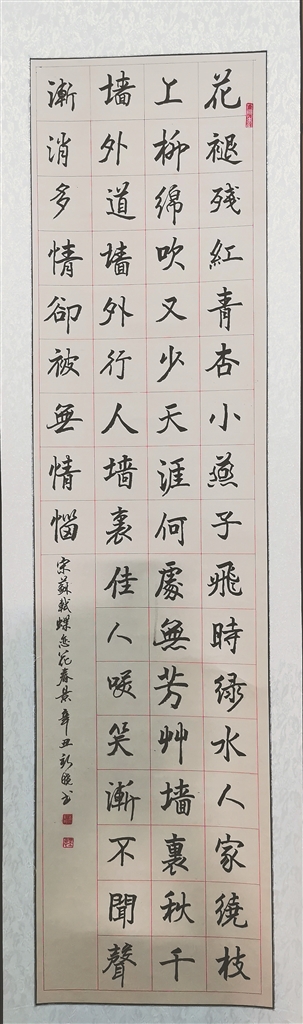 花褪残紅青杏小燕子飛時緑水人家繞枝
上柳綿吹又少天涯何處無芳艸墙裏秋千
墙外道墙外行人墙裏佳人咲笑漸不聞聲
漸消多情卻被無情惱
宋蘇軾蝶恋花春景辛丑